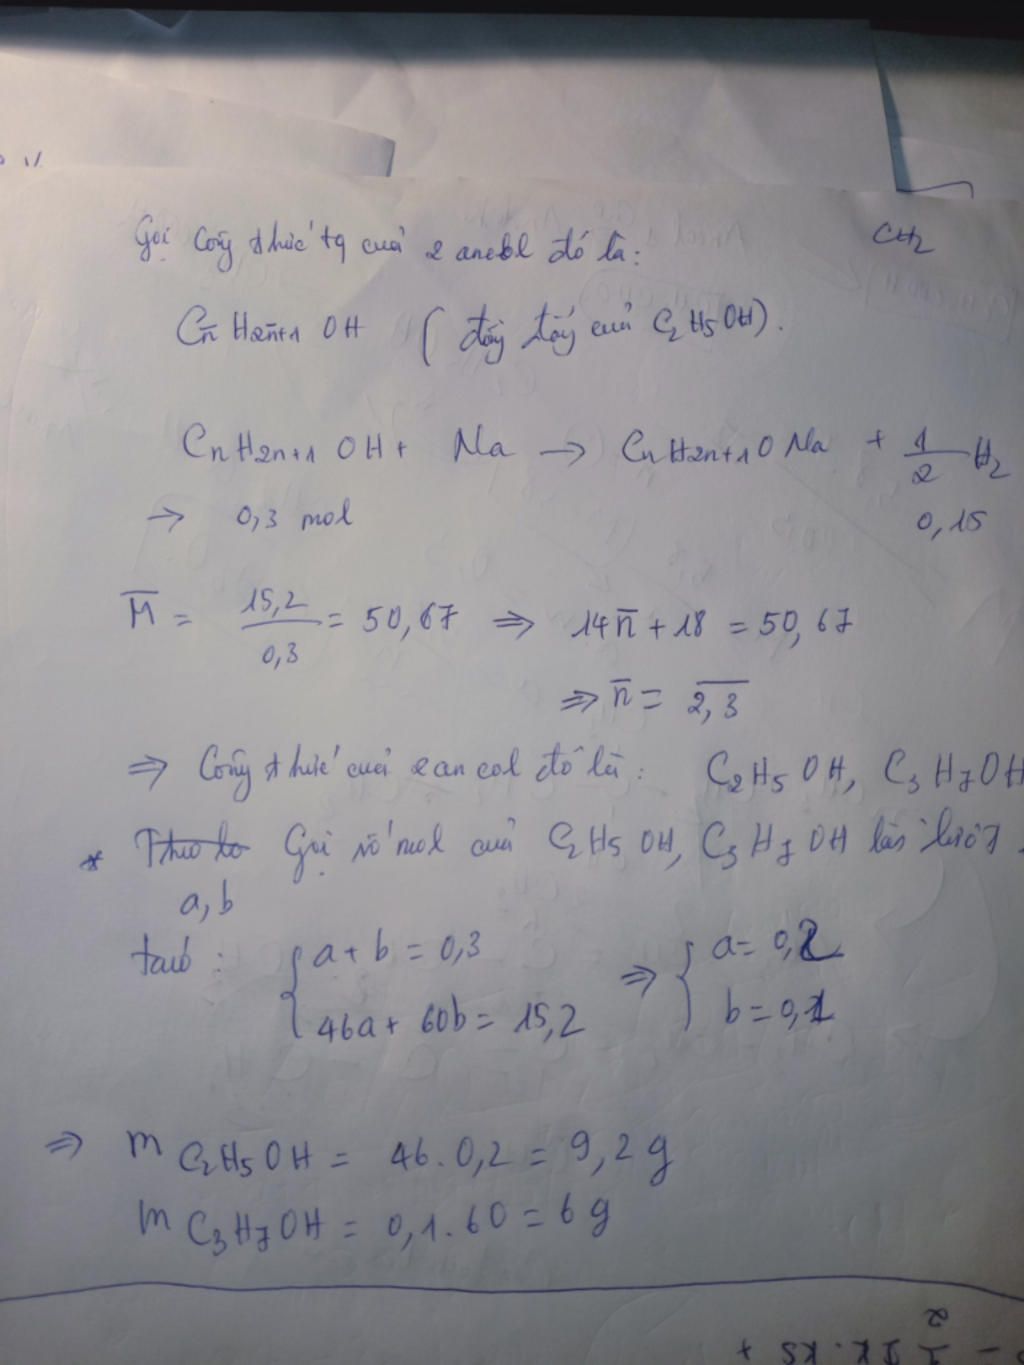 Gọi công thức tq của 2 ancol đó là:
CH2
Cn̄ H2n̄+1 OH ( đồng đẳng của C2H5OH).
CnH2n+1 OH + Na → CnH2n+1O Na + 1/2 H2
→ 0,3 mol 0,15
M̄ = 15,2/0,3 = 50,67 ⇒ 14n̄ + 18 = 50,67
⇒ n̄ = 2,3
⇒ Công thức của 2 ancol đó là: C2H5OH, C3H7OH
* Gọi số mol của C2H5OH, C3H7OH lần lượt
a, b
ta có: { a + b = 0,3 ⇒ { a = 0,2
46a + 60b = 15,2 b = 0,1
⇒ m C2H5OH = 46.0,2 = 9,2g
m C3H7OH = 0,1.60 = 6g